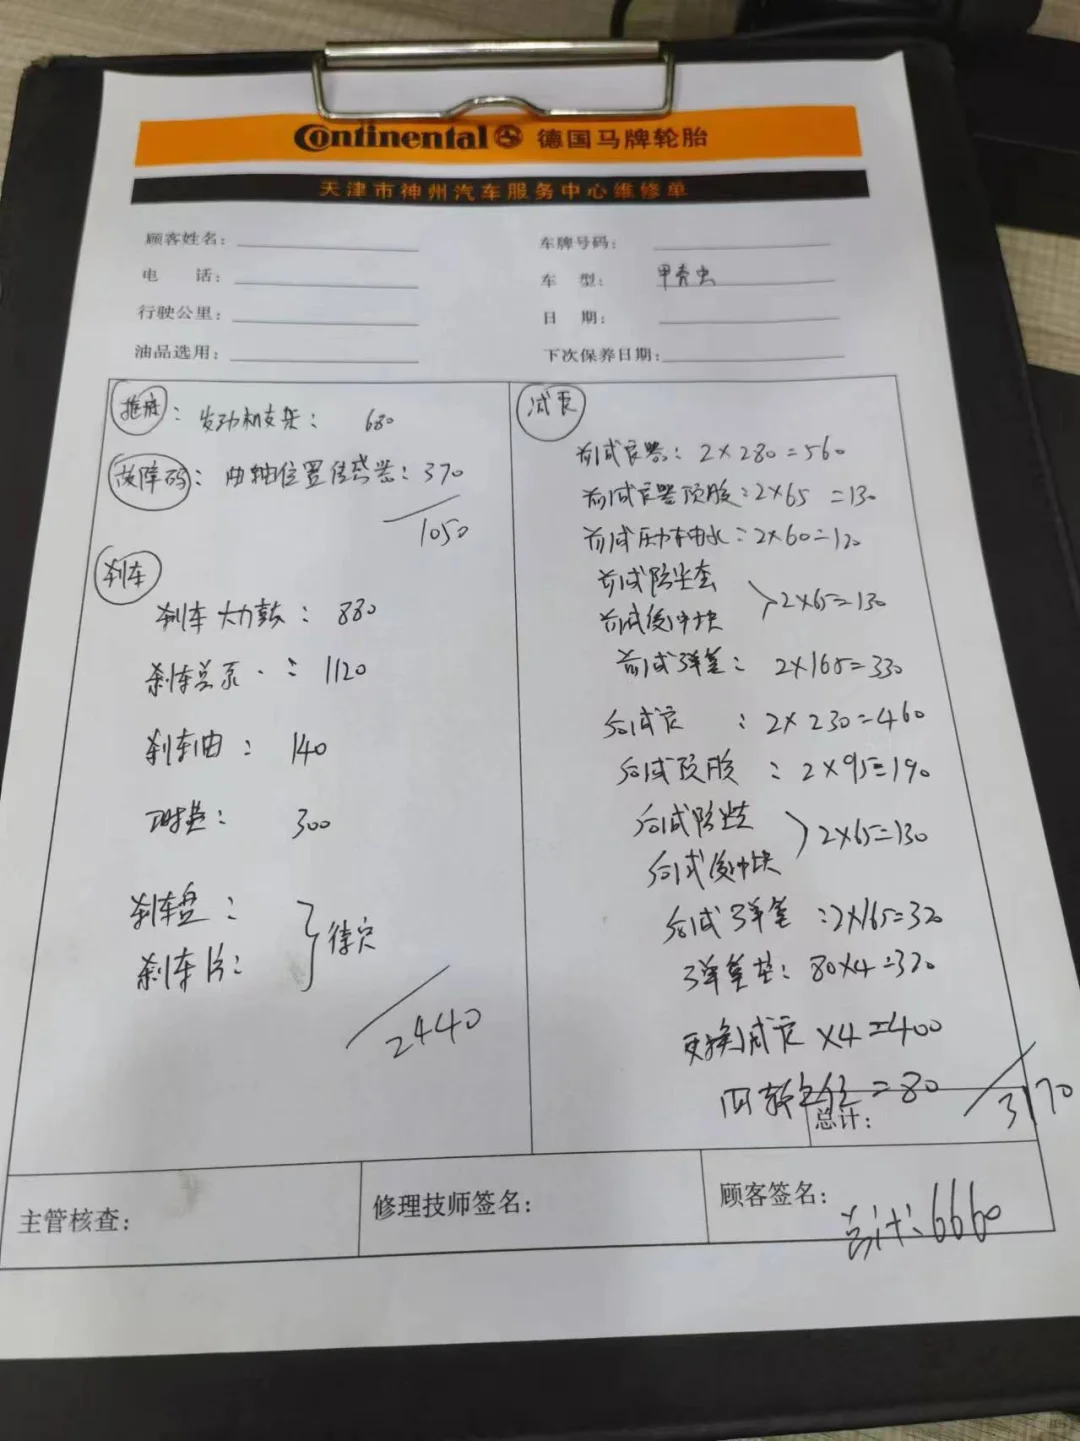 Continental 德国马牌轮胎
天津市神州汽车服务中心维修单
顾客姓名：
电　话：
行驶公里：
油品选用：
车牌号码：
车　型：甲壳虫
日　期：
下次保养日期：
发动机支架：680
故障码：曲轴位置传感器：370
1050
刹车
刹车大力鼓：880
刹车总泵：1120
刹车油：140
工时费：300
刹车盘：
刹车片：
待定
2440
减震
前减震器：2×280=560
前减震器顶胶：2×65=130
前减压力轴承：2×60=120
前减防尘套
前减缓冲块
2×65=130
前减弹簧：2×165=330
后减震：2×230=460
后减顶胶：2×95=190
后减防尘套
后减缓冲块
2×65=130
后减弹簧：2×165=320
弹簧垫：80×4=320
更换减震×4=400
四轮定位=80
3170
总计：
主管核查：
修理技师签名：
顾客签名：
总计：6660